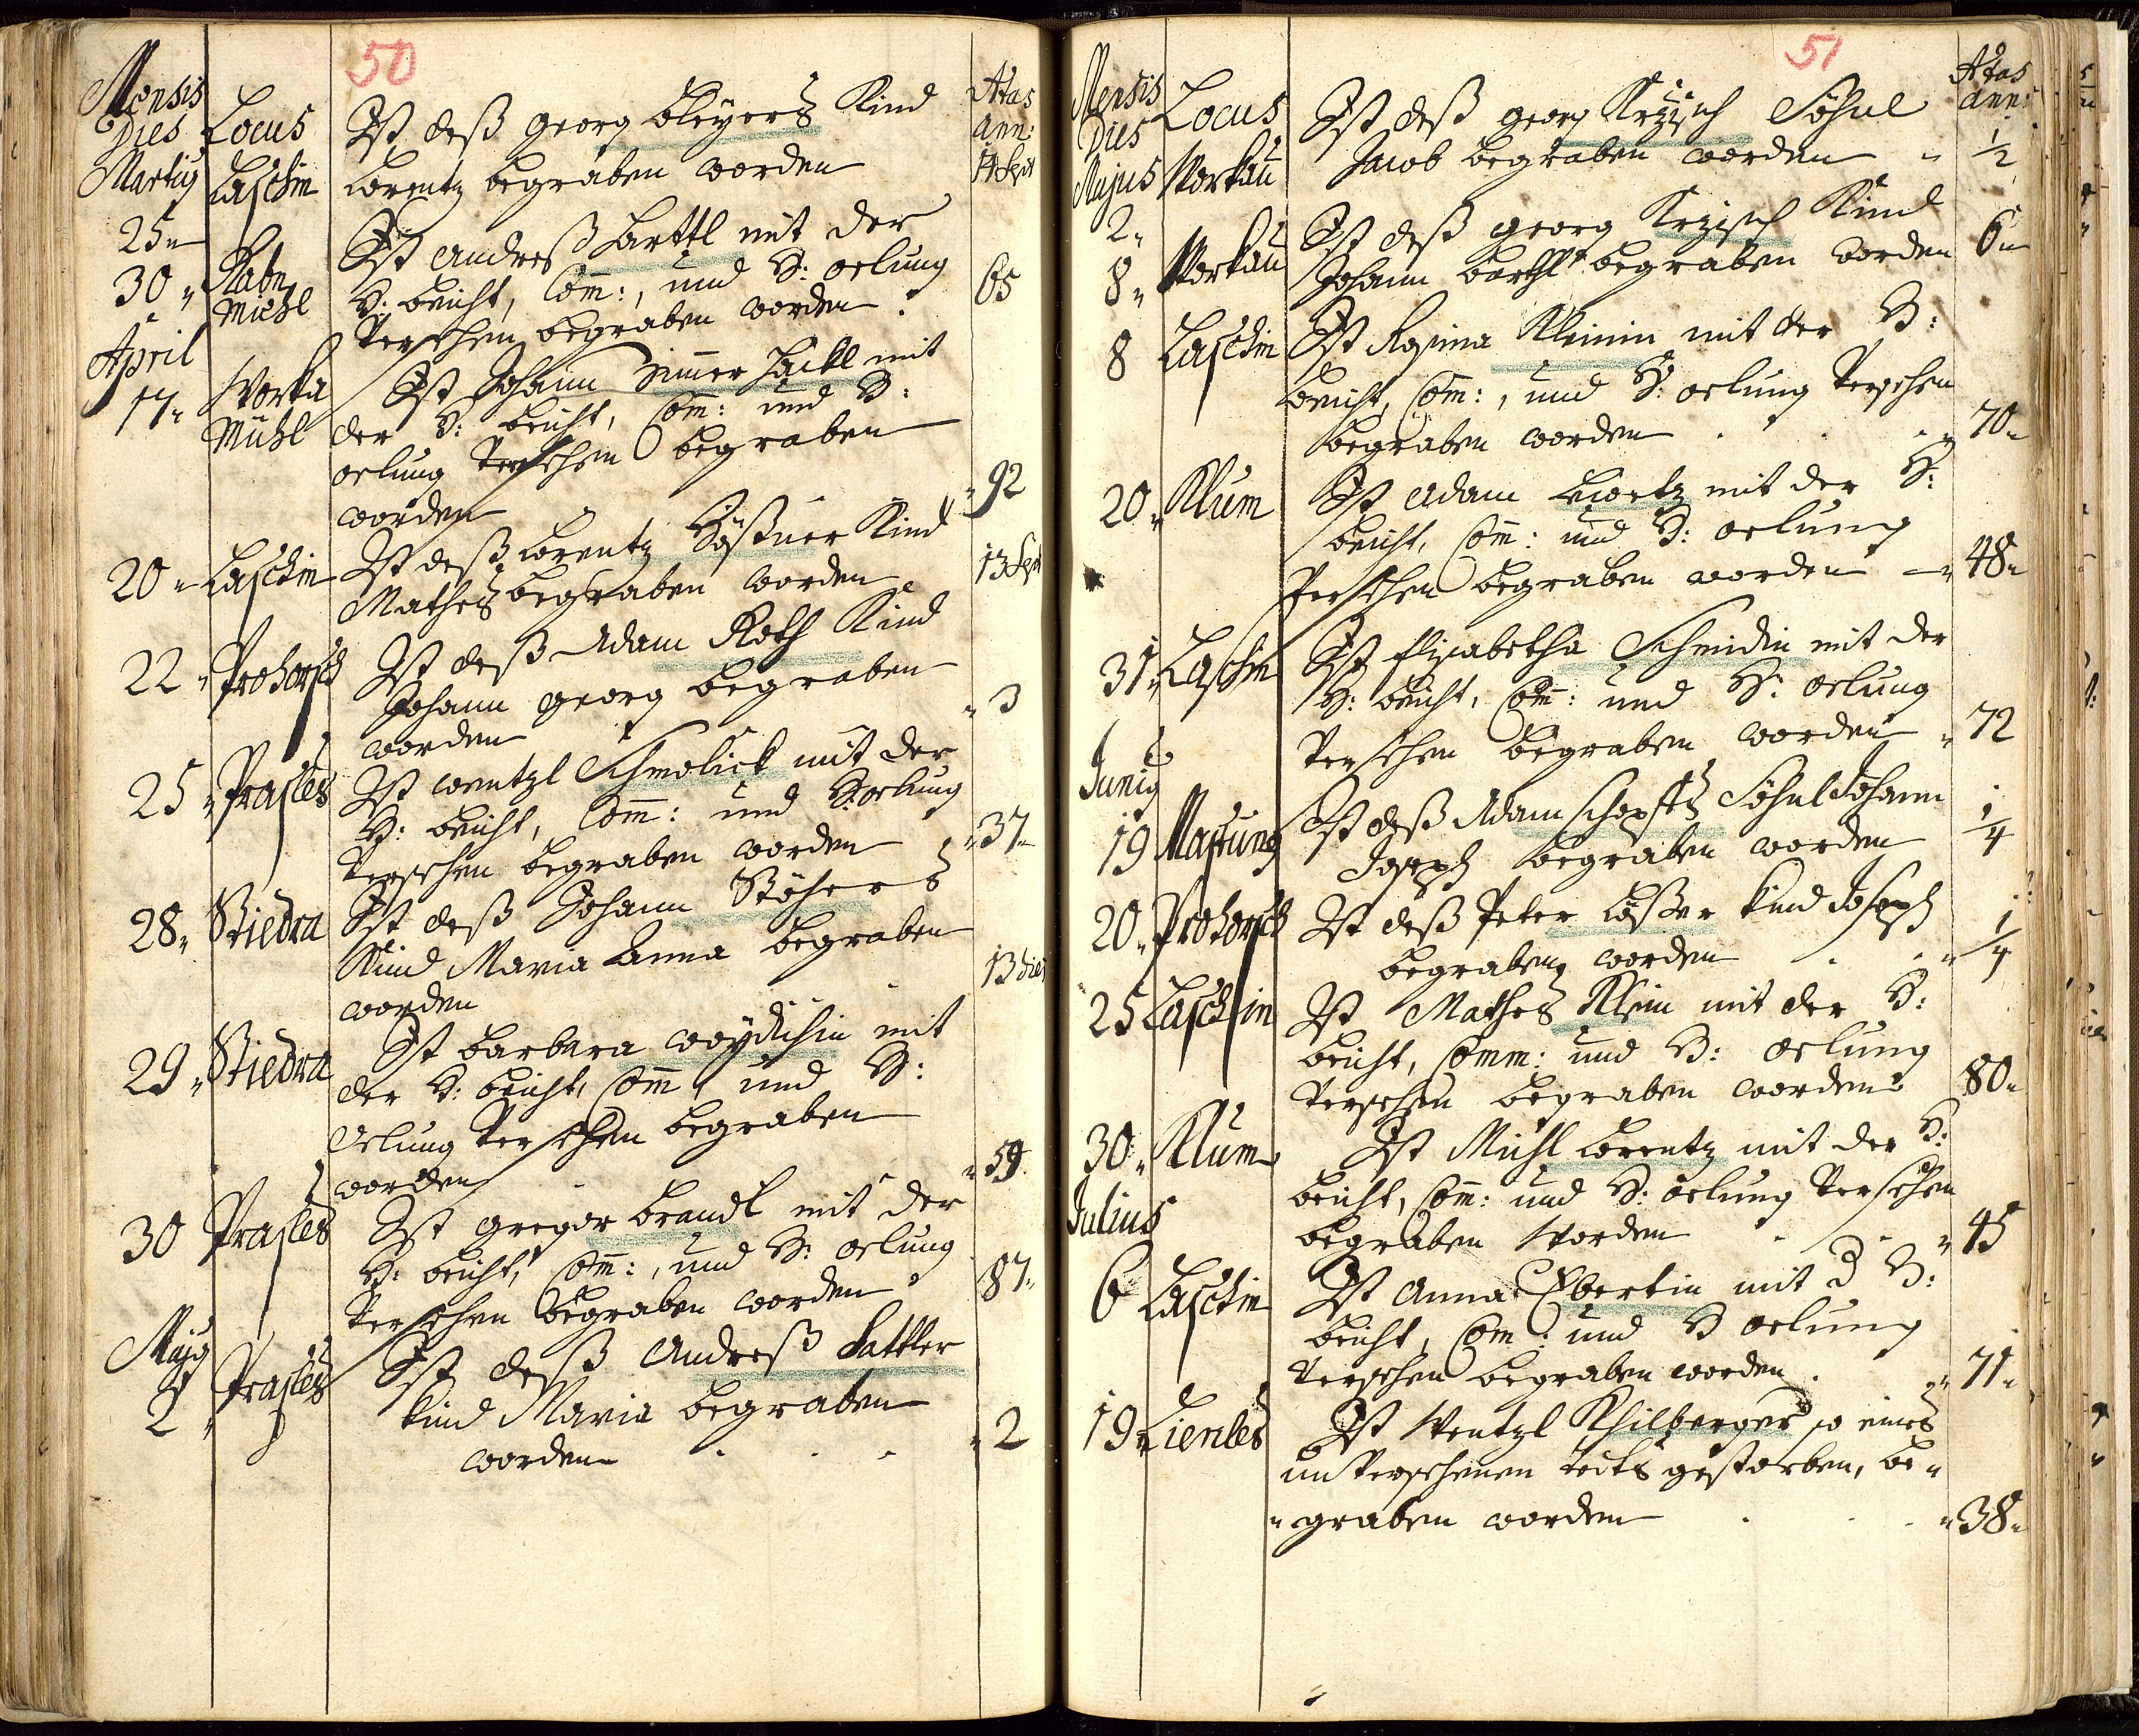 50
Mensis Dies Locus Ætas ann:
Martij Laschin Ist deß Georg Bleyers Kind 14 Sept
25 Lorentz begraben worden
30 Rabn Michl Ist Andreß Harttl mit der
H: beicht, Com:, und H: oelung 65
Versehen begraben worden
April
17 Worka Mühl Ist Johann Zimer Hackl mit
der H: beicht, Com: und H:
oelung Versehen begraben
worden 92
20 Laschin Ist deß Lorentz Kind 13 Sept
Mathes begraben worden
22 Prohorsch Ist deß Adam Roth Kind
Johann Georg begraben 3
worden
25 Prasles Ist Wentzl Schmolick mit der
H: beicht, Com: und H: oelung
Versehen begraben worden 37
28 Stiedra Ist deß Johann Stöhers
Kind Maria Anna begraben 13 dies
worden
29 Stiedra Ist Barbara mit
der H: beicht, Com und H:
Oelung Versehen begraben
worden 59
30 Prasles Ist Gregor Brandl mit der
H: beicht, Com:, und H: oelung
Versehen begraben worden 87
Maij
2 Prasles Ist deß Andreß Sattler
Kind Maria begraben
worden 2
51
Mensis Dies Locus Ætas ann:
Majus Workau Ist deß Georg Söhnl
2 Jacob begraben worden 1/2
8 Workau Ist deß Georg Kind
Johann Barthl begraben worden 6
8 Laschin Ist Rosina Kleinin mit der H:
beicht, Com:, und H: oelung Versehen
begraben worden 70
20 Klum Ist Adam mit der H:
beicht, Com: und H: oelung
Versehen begraben worden 48
31 Laschin Ist Elisabetha Schmidin mit der
H: beicht, Com: und H: oelung
Versehen begraben worden 72
Junij
19 Maßtung Ist deß Adam Schopffs Söhnl Johann
Joseph begraben worden 1/4
20 Prohorsch Ist deß Peter Lößer Kind Joseph
begraben worden 1/4
25 Laschin Ist Mathes Klein mit der H:
beicht, Comm: und H: oelung
Versehen begraben worden 80
30 Klum Ist Michl Lorentz mit der H:
beicht, Com: und H: oelung Versehen
begraben Worden 45
Julius
6 Laschin Ist Anna Ebertin mit d H:
beicht, Com: und H oelung
Versehen begraben worden 71
19 Lienles Ist Wentzl Khilberger so eines
unversehenen todts gestorben, be
graben worden 38